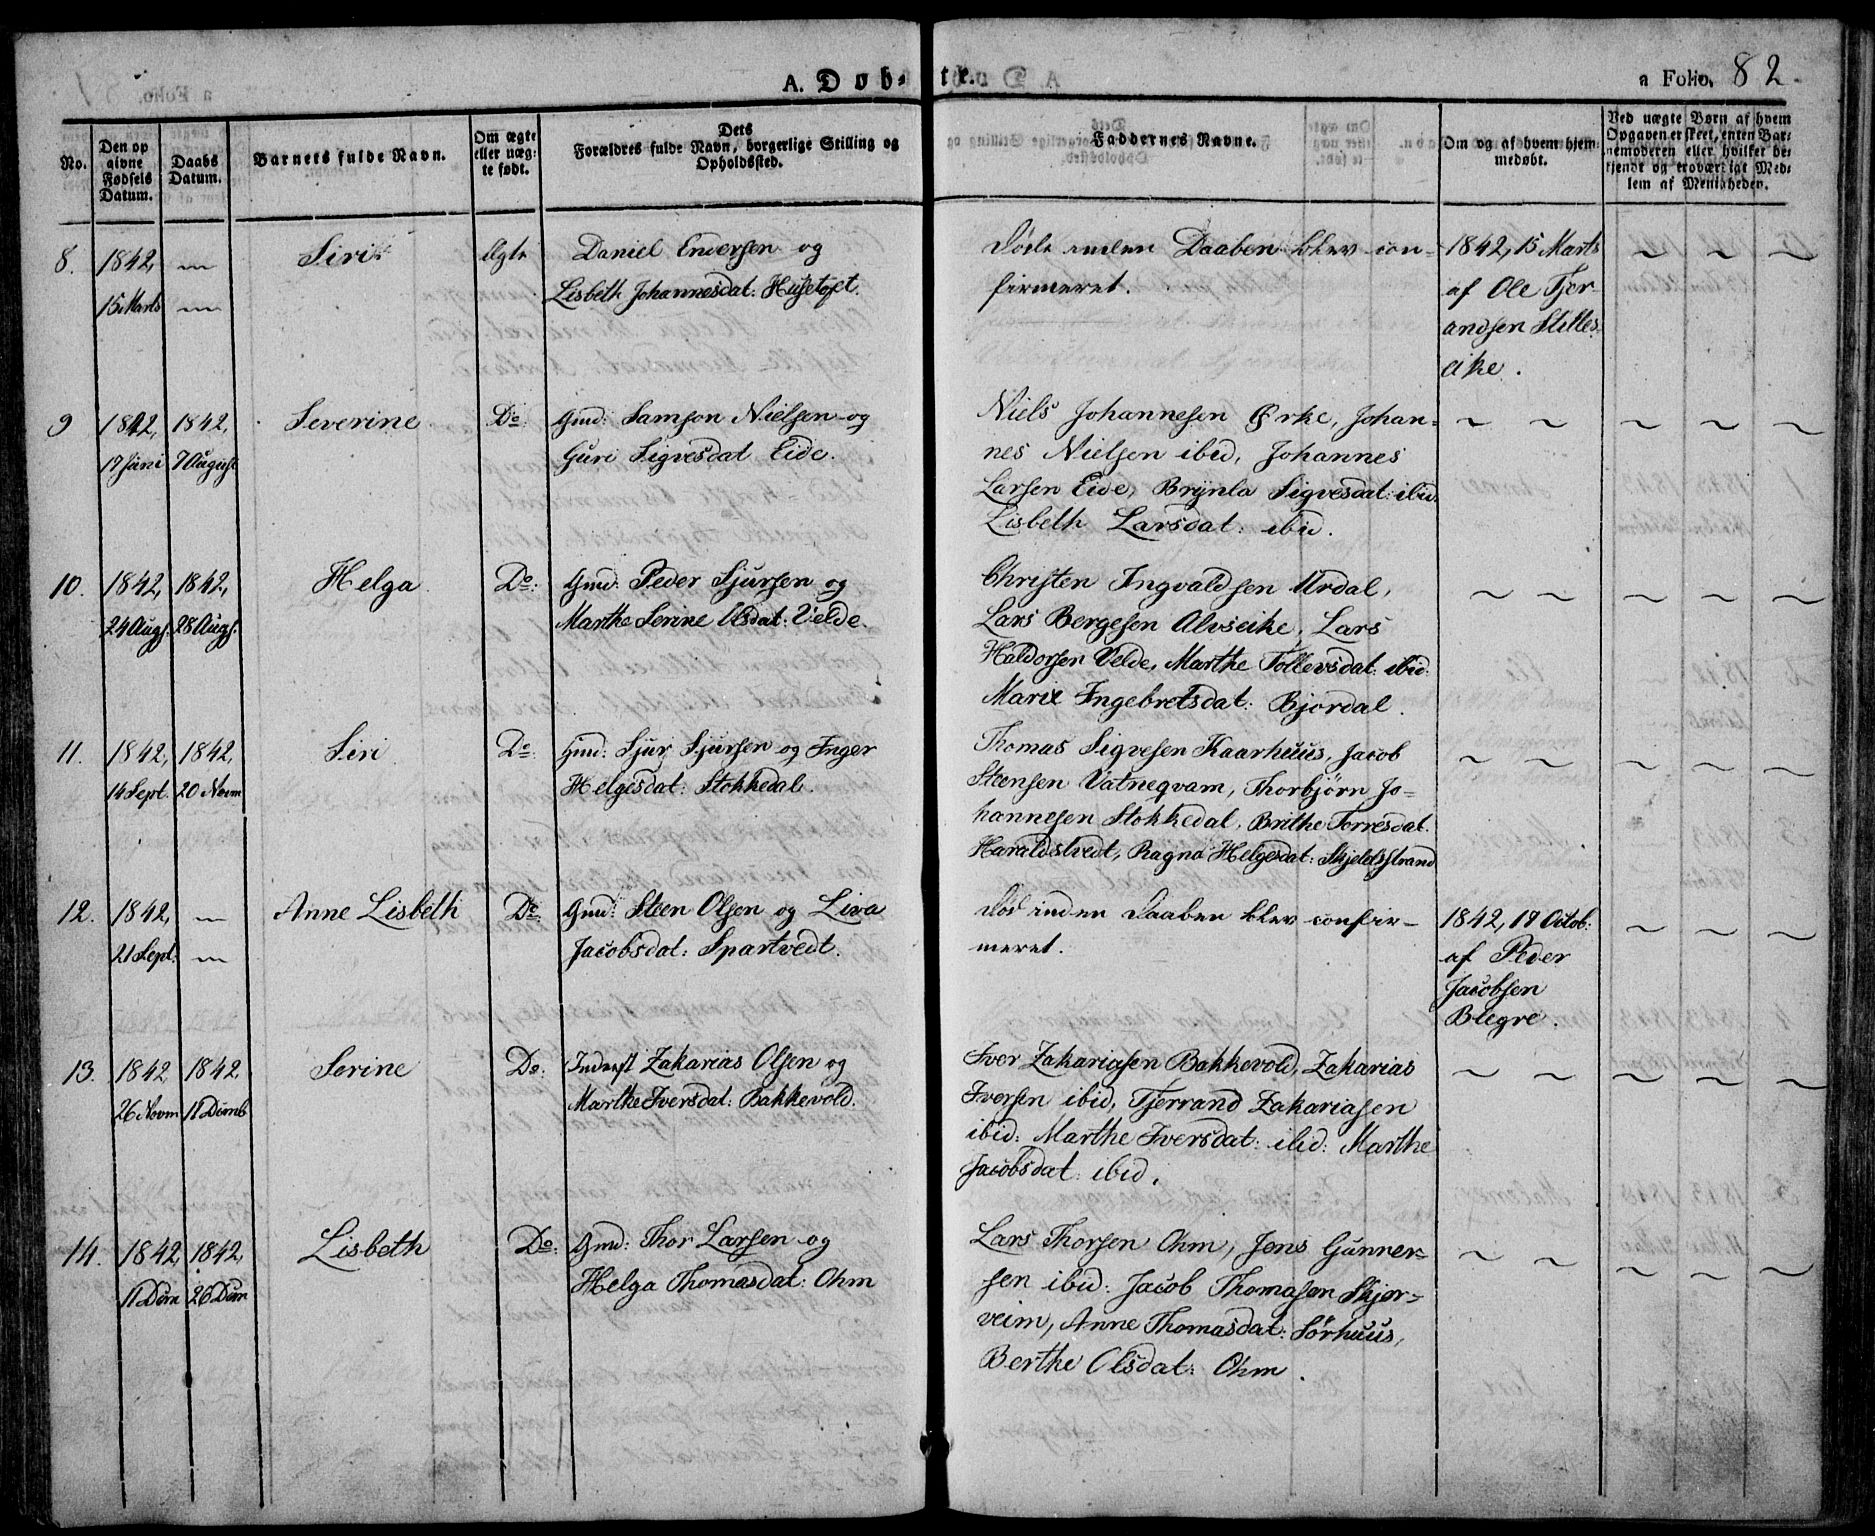 A. Døb-
te.
a Folio. 82
No.
Den op
givne
Fødsels
Datum.
Daabs
Datum.
Barnets fulde Navn.
Om ægte
eller uæg-
te født.
Dets
Forældres fulde Navn, borgerlige Stilling og
Opholdssted.
Faddernes Navne.
Om og af hvem hjem-
medøbt.
Ved uægte Børn af hvem
Opgaven er skeet, enten Bar-
nemoderen eller hvilket be-
kjendt og troværdigt Med-
lem af Menigheden.
8. 1842, 15 Marts
Siri
Ægte
Daniel Endersen og
Lisbeth Johannesdat: Husetoft.
Døde inden Daaben blev con-
firmeret.
1842, 15 Marts
af Ole Tjer-
andsen Stilles-
eike.
9 1842, 17 Juni
1842, 7 August
Severine
Do
Gmd: Samson Nielsen og
Guri Sigvesdat Eide.
Niels Johannesen Ørke, Johan-
nes Nielsen ibid, Johannes
Larsen Eide, Brynla Sigvesdat: ibid
Lisbeth Larsdat: ibid.
10. 1842, 24 Augs.
1842, 28 Augs.
Helga
Do:
Gmd: Peder Sjursen og
Marthe Serine Olsdat: Velde.
Christen Ingvaldsen Urdal,
Lars Bergesen Alvseike, Lars
Haldorsen Velde, Marthe Tollevsdat: ibid:
Marie Ingebretsdat: Bjordal.
11. 1842, 14 Sept.
1842, 20 Novm
Siri
Do:
Gmd: Sjur Sjursen og Inger
Helgesdat: Stokkedal.
Thomas Sigvesen Kaarhuus, Jacob
Steensen Vatneqvam, Thorbjørn Jo-
hannesen Stokkedal, Brithe Torresdat.
Haraldstvedt, Ragna Helgesdat: Skjeldsstrand
12. 1842, 21 Sept.
Anne Lisbeth
Do:
Gmd: Steen Olsen og Liva
Jacobsdat: Spartvedt.
Død inden Daaben blev confir-
meret.
1842, 19 Octob:
af Peder
Jacobsen
Blegre.
13. 1842 26 Novm
1842 11 Dcmb
Serine
Do:
Inderst Zakarias Olsen og
Marthe Iversdat: Bakkevold.
Iver Zakariasen Bakkevold, Zakarias
Iversen ibid, Tjerrand Zakariasen
ibid: Marthe Iversdat: ibid: Marthe
Jacobsdat: ibid.
14. 1842, 11 Dcm
1842, 26 Dcm
Lisbeth
Do:
Gmd: Thor Larsen og
Helga Thomasdat: Ohm
Lars Thorsen Ohm, Jens Gunner-
sen ibid: Jacob Thomasen Skjer-
veim, Anne Thomasdat: Sørhuus,
Berthe Olsdat: Ohm.